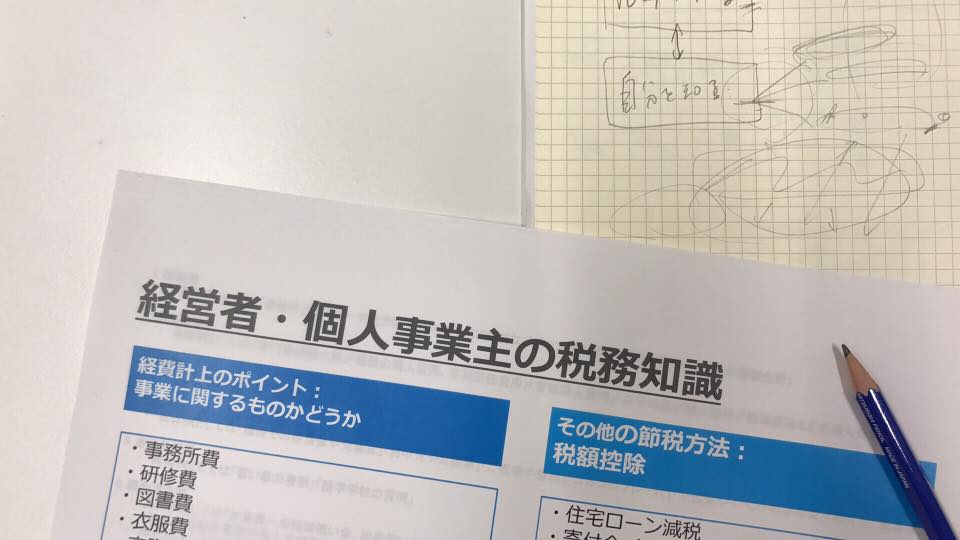 自分を知る
経営者・個人事業主の税務知識
経費計上のポイント：
事業に関するものかどうか
・事務所費
・研修費
・図書費
・衣服費
その他の節税方法：
税額控除
・住宅ローン減税